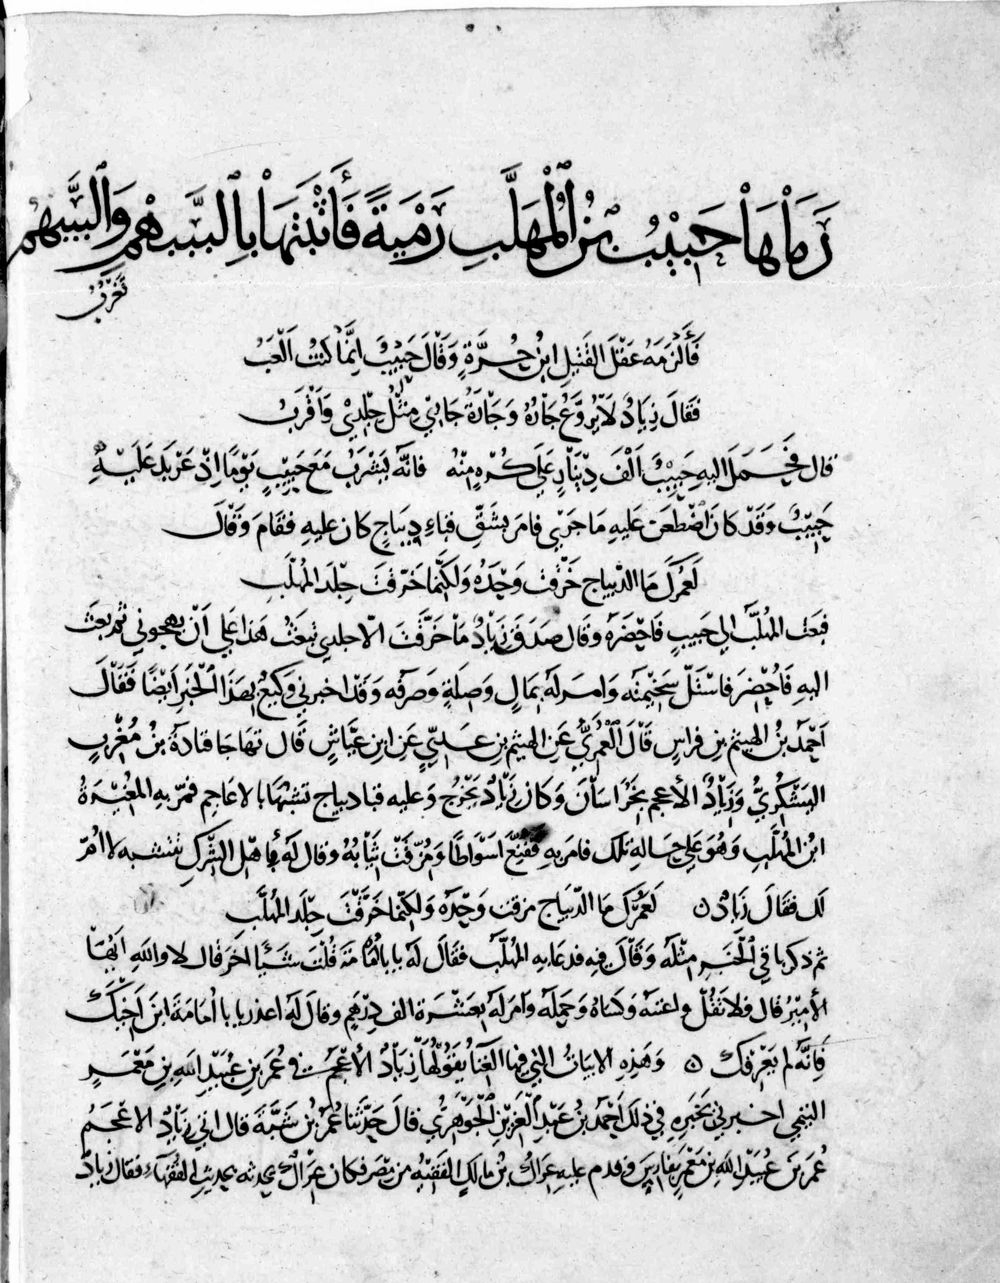 رَمَاهَا حَبِيْبُ بْنُ الْمُهَلَّبِ رَمْيَةً فَأَثْبَتَهَا بِالسَّهْمِ وَالسَّهْمُ
يَغْرُبُ
فَأَلْزَمَهُ عَقْلَ القَتِيلِ ابنُ حُرَّةٍ وَقَالَ حَبِيبٌ إِنَّمَا كُنْتُ أَلْعَبُ
فَقَالَ زِيَادٌ لَا يُرَوَّعُ جَارُهُ وَجَارَةُ جَارِي مِثْلُ جِلْدِي وَأَقْرَبُ
قال فَحَمَلَ اليهِ حَبِيْبٌ أَلْفَ دِيْنَارٍ عَلَى كُرْهٍ مِنْهُ فانَّه لَيَشْرَبُ مَعَ حَبِيْبٍ يَوْمًا إِذْ عَرْبَدَ عَلَيْهِ
حَبِيْبٌ وَقَدْ كانَ اضْطَغَنَ عَلَيهِ مَا جَرَى فامَرَ بِشَقِّ قباءِ دِيبَاجٍ كان عليهِ فقامَ وَقَالَ
لَعَمْرُكَ مَا الدِّيبَاجَ خَرَّقْتَ وَحْدَهُ وَلَكِنَّمَا خَرَّقْتَ جِلْدَ المُهَلَّبِ
فبَعَثَ المهَلَّبُ الى حَبيبٍ فَاحْضَرَهُ وقال صَدَقَ زِيَادٌ مَا خَرَّقْتَ الّا جلدي تبعثُ هَذا عَلى أَنْ يهجوني ثم بعث
اليهِ فَأُحْضِرَ فاسْتَلَّ سَخِيْمَتَه وَامرَ لَهُ بمَالٍ وَصَلَهُ وَصَرفَه وَقَد اخبرني وَكِيعٌ بِهَذَا الْخَبَرِ أَيْضًا فَقَالَ
أحْمَدُ بْنُ الهَيثَمِ بنِ فراسٍ قَالَ الْعُمَرِيُّ عَنِ الهيثم بن عَدِيٍّ عَنِ ابنِ عَيَّاشٍ قَال تهَاجَا قتادَةُ بنُ مُغْرِبٍ
اليَشْكُرِيُّ وَزِيَادٌ الأعجم بِخُرَاسَانَ وَكانَ زِيَادٌ يَخْرُجُ وَعليهِ قبا ديباجٍ تشبُّهًا بالاعَاجِم فمَرّ بهِ المُغِيْرَةُ
ابنُ المُهَلَّبِ وَهُوَ عَلى حَالِهِ تلكَ فامرَ بهِ فَقُنِّعَ أسْوَاطًا وَمُزِّقَتْ ثِيَابُهُ وقال لَهُ أبِاهْلِ الشِّركِ تتشبه لا امَّ
لكَ فقالَ زيَادٌ ه لَعَمْرُكَ مَا الدِّيبَاجَ مزقت وَحْدَهُ وَلكِنَّما خَرَّقْتَ جِلْدَ المُهَلَّبِ
ثم ذكر باقي الْخَبَرِ مِثْلَهُ وَقَالَ فيهِ فدعا بهِ المُهَلَّبُ فقال لَهُ يا باأُمَامَةَ قُلْتَ شَيْئًا آخَرَ قال لا واللهِ أَيُّهَا
الأميْرُ قال فلا تَقُلْ واعتبَهُ وَكسَاهُ وَحَملَهُ وَأَمرَ لَهُ بعشرة الف دِرْهَمٍ وقالَ لهُ اعذر يا با أُمَامَةَ ابنَ أَخِيْكَ
فَإِنَّهُ لم يَعْرفكَ ه وَهَذِهِ الابياتُ التي فيها الغِنَاءُ يَقُولُهَا زِيَادٌ الأَعْجَمُ في عُمَرَ بنِ عُبَيْدِ اللهِ بْنِ مَعْمَرٍ
التَيْمِي اخبرني بخَبَرِهِ في ذلكَ أَحْمَدُ بنُ عَبْدِ الْعَزيْزِ الجَوْهَرِيُّ قالَ حَدَّثَنا عُمَرُ بنُ شَبَّةَ قال اتى زِيَادٌ الاعْجَمُ
عُمَرَ بنَ عُبَيْدِ اللهِ بْنِ مَعْمَرٍ بفارِسَ وقدم عليهِ عِرَاكُ بنُ مالكٍ الفقيْهُ مِن مِصرَ فكان عِرَاكٌ يحدثه بحديثِ الفُقَهَاءِ فقال زيادٌ